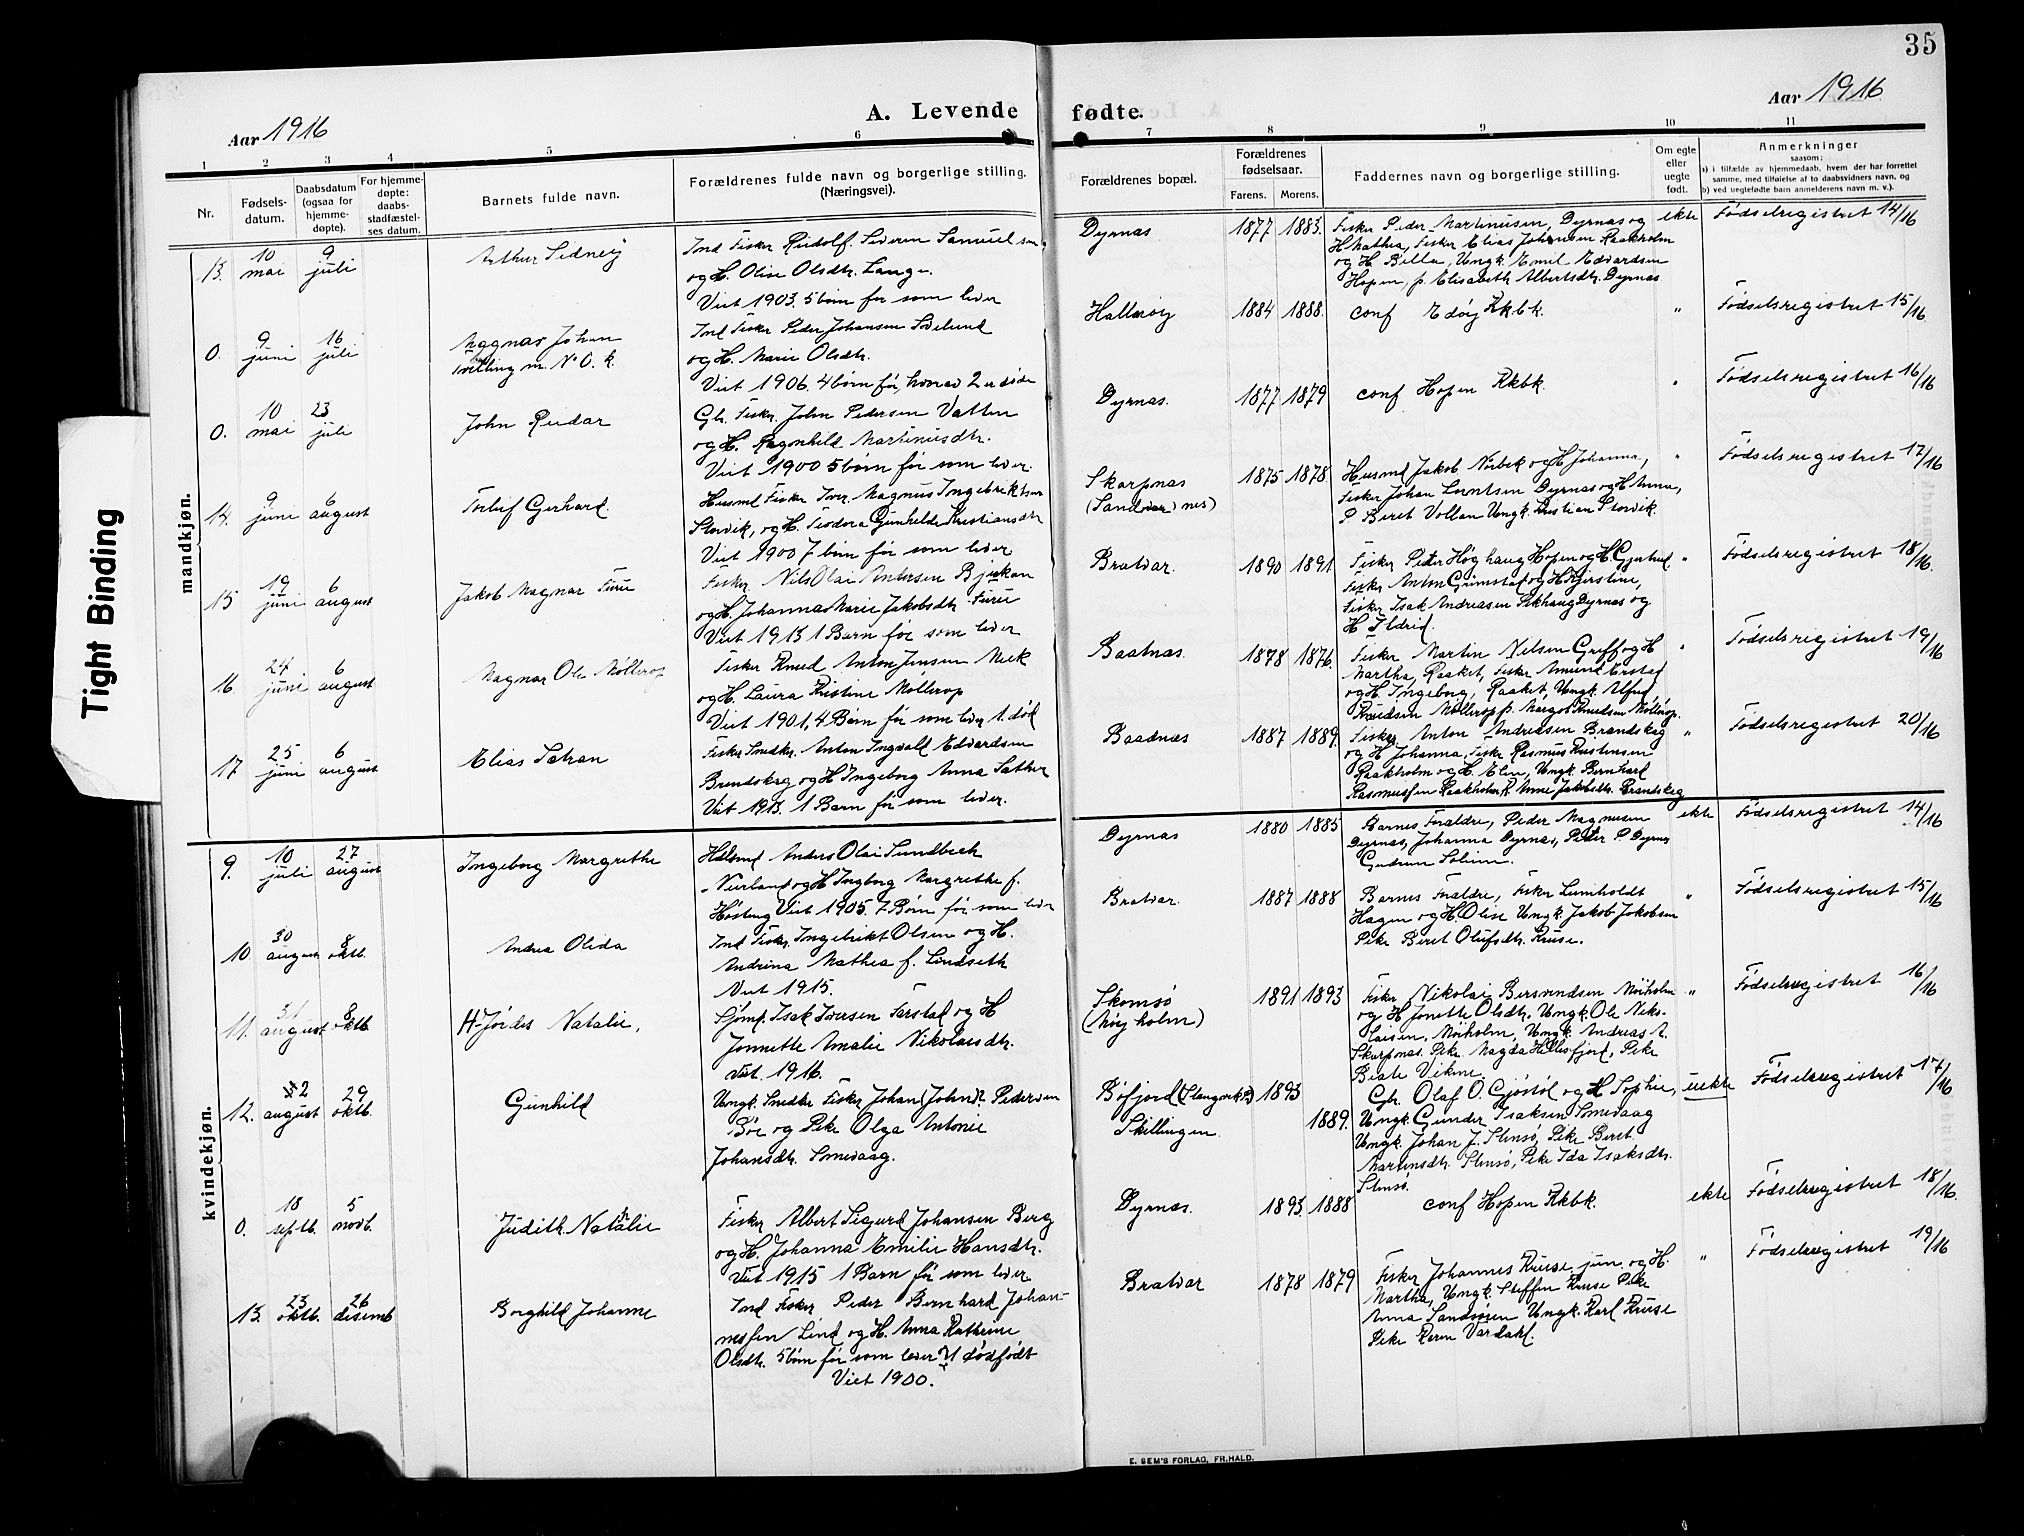 35
Aar 1916
A. Levende fødte.
Aar 1916
1 2 3 4 5 6 7 8 9 10 11
Nr.
Fødsels-
datum.
Daabsdatum
(ogsaa for
hjemme-
døpte).
For hjemme-
døpte:
daabs-
stadfæstel-
ses datum.
Barnets fulde navn.
Forældrenes fulde navn og borgerlige stilling.
(Næringsvei).
Forældrenes bopæl.
Forældrenes
fødselsaar.
Farens. Morens.
Faddernes navn og borgerlige stilling.
Om egte
eller
uegte
født.
Anmerkninger
saasom:
a) i tilfælde av hjemmedaab, hvem der har forrettet
samme, med tilføielse af to daabsvidners navn, og
b) ved uegtefødte barn anmelderens navn m. v.).
mandkjøn.
13. 10 mai 9 juli
Arthur Sidney
Ind Fisker Rudolf Severin Samuelsen
og H. Olise Olsdtr. Lange.
Viet 1903. 5 børn før som lever
Dyrnæs 1877 1883.
Fisker Peder Martinusen, Dyrnæs og
H Mathea, Fisker Elias Johansen Raakholm
og H Billa, Ungk. Emil Edvardsen
Hopen, p. Elisabeth Albertsdtr. Dyrnas
ekte
Fødselsregistret 14/16
0. 9 juni 16 juli
Magnar Johan
Tvilling m. N° 0. k.
Ind Fisker Peder Johansen Sivelund
og H. Marie Olsdtr.
Viet 1906. 4 børn før, hvorav 2 er døde
Hallarøy 1884 1888.
conf Edøy Kkbk.
"
Fødselsregistret 15/16.
0. 10 mai 23 juli
John Reidar
Gbr. Fisker John Pedersen Vatten
og H. Ragnhild Martinusdtr.
Viet 1900 5 børn før som lever.
Dyrnas. 1877 1879
conf Hopen Kkbk.
"
Fødselsregistret 16/16
14. 9 juni 6 august
Torleif Gerhard.
Husmd Fisker Iver Magnus Ingebriktsen
Storvik, og H. Teodora Gunhilde Kristiansdtr
Viet 1900 7 børn før som lever
Skarpnas
(Sandvar nes)
1875 1878
Husmd Jakob Norbek og H Johanna,
Fisker Johan Lorntsen Dyrnæs og H Anna,
P. Beret Vollan Ungk. Kristian Storvik.
"
Fødselsregistret 17/16
15 19 juni 6 august
Jakob Magnar Furu
Fisker Nils Olai Andersen Bjerkan
og H. Johanna Marie Jakobsdtr. Furu
Viet 1913 1 Barn før som lever
Bratvar. 1890 1891
Fisker Peder Høghaug Hopen og H Gjertrud
Fisker Anton Grimstad og H Kjerstine,
Fisker Isak Andreasen Sekhaug Dyrnæs og
H Ildrid.
"
Fødselsregistret 18/16.
16. 24 juni 6 august
Magnar Ole Møllerop
Fisker Knud Anton Jensen Meek
og H. Laura Kristine Møllerop
Viet 1901, 4 Børn før som lever 1. død
Baatnas. 1878 1876.
Fisker Martin Nilsen Greff og H
Martha, Raaket, Fisker Amund Erstad
og H. Ingeborg, Raaket, Ungk. Alfred
Knudsen Møllerop p. Margot Knudsen Møllerop.
"
Fødselsregistret 19/16
17 25 juni 6 august
Elias Satran
Fisker Snedker. Anton Ingvald Edvardsen
Brandskag og H Ingeborg Anna Sather
Viet 1913. 1 Barn før som lever.
Baadnas 1887 1889.
Fisker Anton Andreasen Brandskag
og H Johanna, Fisker Rasmus Kristensen
Raakholm og H. Elen, Ungk. Bernhard
Rasmussen Raakholm P. Anne Jakobsdtr. Brandskag
"
Fødselsregistret 20/16
kvindekjøn.
9. 10 juli 27 august
Ingeborg Margrethe
Husmd Anders Olai Sundbeck
Neerland og H Ingborg Margrethe f.
Høsteng Viet 1905. 7 Børn før som lever
Dyrnas 1880 1885
Barnes Foraldre, Peder Magnusen
Dyrnas, Johanna Dyrnas, Petter P. Dyrnes
Gudrun Solum.
ekte
Fødselsregistret 14/16
10. 30 august 8 oktb.
Andrea Olida
Ind Fisker Ingebrikt Olsen og H.
Andrina Mathea f. Lindseth
Viet 1915.
Bratvar. 1887 1888
Barnes Foraldre, Fisker Lumholdt
Hagen og H. Olise Ungk. Jakob Jakobsen
Pike Beret Olufsdtr. Kruse.
"
Fødselsregistret 15/16
11. 31 august 8 oktb.
Hjørdes Natalie,
Sjømd. Isak Iversen Farstad og H
Jonette Amalie Nikolaisdtr.
Viet 1916.
Skomsø
(Nøyholm)
1891 1893
Fisker Nikolai Bersvendsen Nøiholm
og H Jonette Olsdtr. Ungk. Ole Niko-
laisen, Nøiholm, Ungk. Andreas A.
Skarpnas. Pike Magda Hellesfjord, Pike
Beate Vikene.
"
Fødselsregistret 16/16
12. 22 august 29 oktb.
Gunhild
Ungk. Snedker Fisker Johan (John)? Pedersen
Bøe og Pike Olga Antonie
Johansdtr. Smevaag.
Bøfjord (Stangvik)
Skillingen.
1893
1889.
Gbr. Olaf O. Gjøstøl og H Sophie,
Ungk. Gunder Isaksen Smevaag
Ungk. Johan J. Stensø, Pike Beret
Martinsdtr. Stensø, Pike Ida Isaksdtr.
Stensø.
uekte
Fødselsregistret 17/16
0. 18 septb. 5 novb.
Judith Natalie
Fisker Albert Sigurd Johansen Berg
og H. Johanna Emilie Hansdtr.
Viet 1915 1 Barn før som lever
Dyrnas. 1893 1888
conf Hopen Kkbk.
ekte
Fødselsregistret 18/16.
13. 23 oktb. 26 desemb
Borghild Johanne
Ind Fisker Peder Bernhard Johan-
nessen Lind og H. Anna Kathrine
Olsdtr. 5 børn før som lever 1 dødfødt
Viet 1900.
Bratvar 1878 1879
Fisker Johannes Kruse jun. og H.
Martha, Ungk. Steffen Kruse Pike
Anna Sandsøren Ungk. Karl Kruse
Pike Karen Vardahl.
"
Fødselsregistret 19/16
E. SEM'S FORLAG, FR.HALD.
Tight Binding